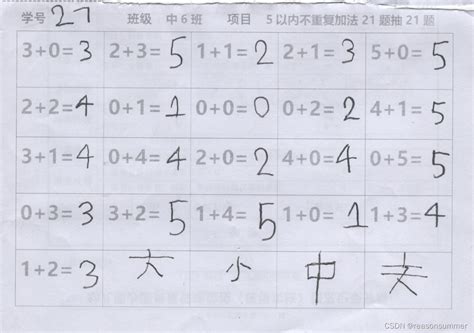 学号 27 班级 中6班 项目 5以内不重复加法21题抽21题
3+0=3 2+3=5 1+1=2 2+1=3 5+0=5
2+2=4 0+1=1 0+0=0 0+2=2 4+1=5
3+1=4 0+4=4 2+0=2 4+0=4 0+5=5
0+3=3 3+2=5 1+4=5 1+0=1 1+3=4
1+2=3 大 小 中
CSDN @reasonsummer